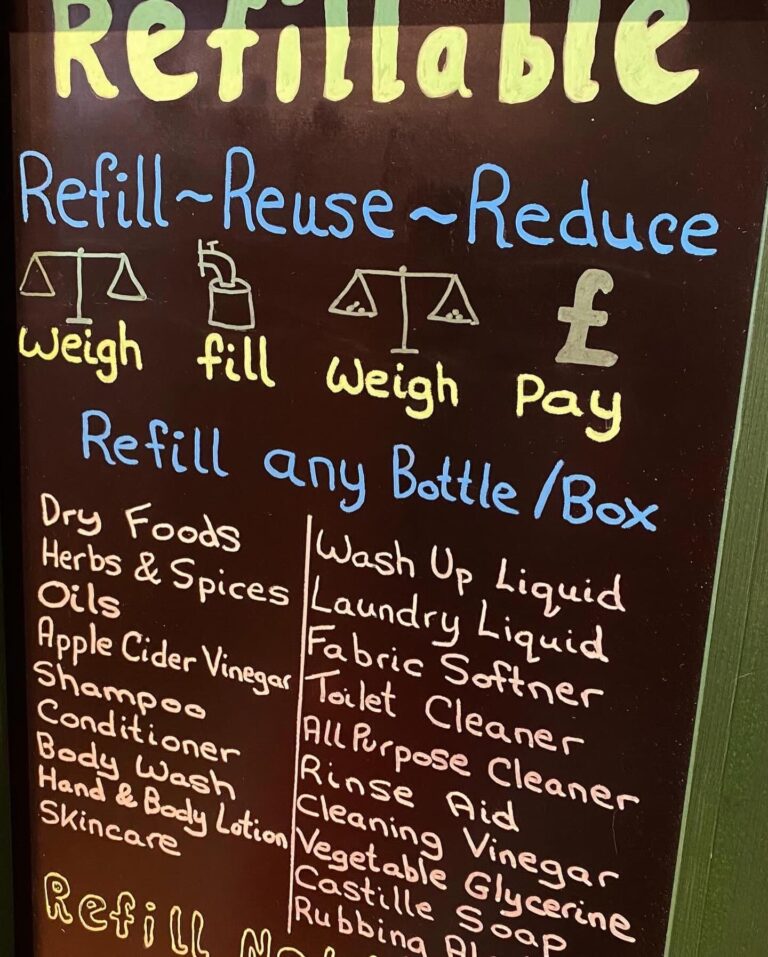 Refillable
Refill~Reuse~Reduce
£
Weigh fill Weigh Pay
Refill any Bottle/Box
Dry Foods
Herbs & Spices
Oils
Apple Cider Vinegar
Shampoo
Conditioner
Body Wash
Hand & Body Lotion
Skincare
Wash Up Liquid
Laundry Liquid
Fabric Softner
Toilet Cleaner
All Purpose Cleaner
Rinse Aid
Cleaning Vinegar
Vegetable Glycerine
Castille Soap
Rubbing
Refill